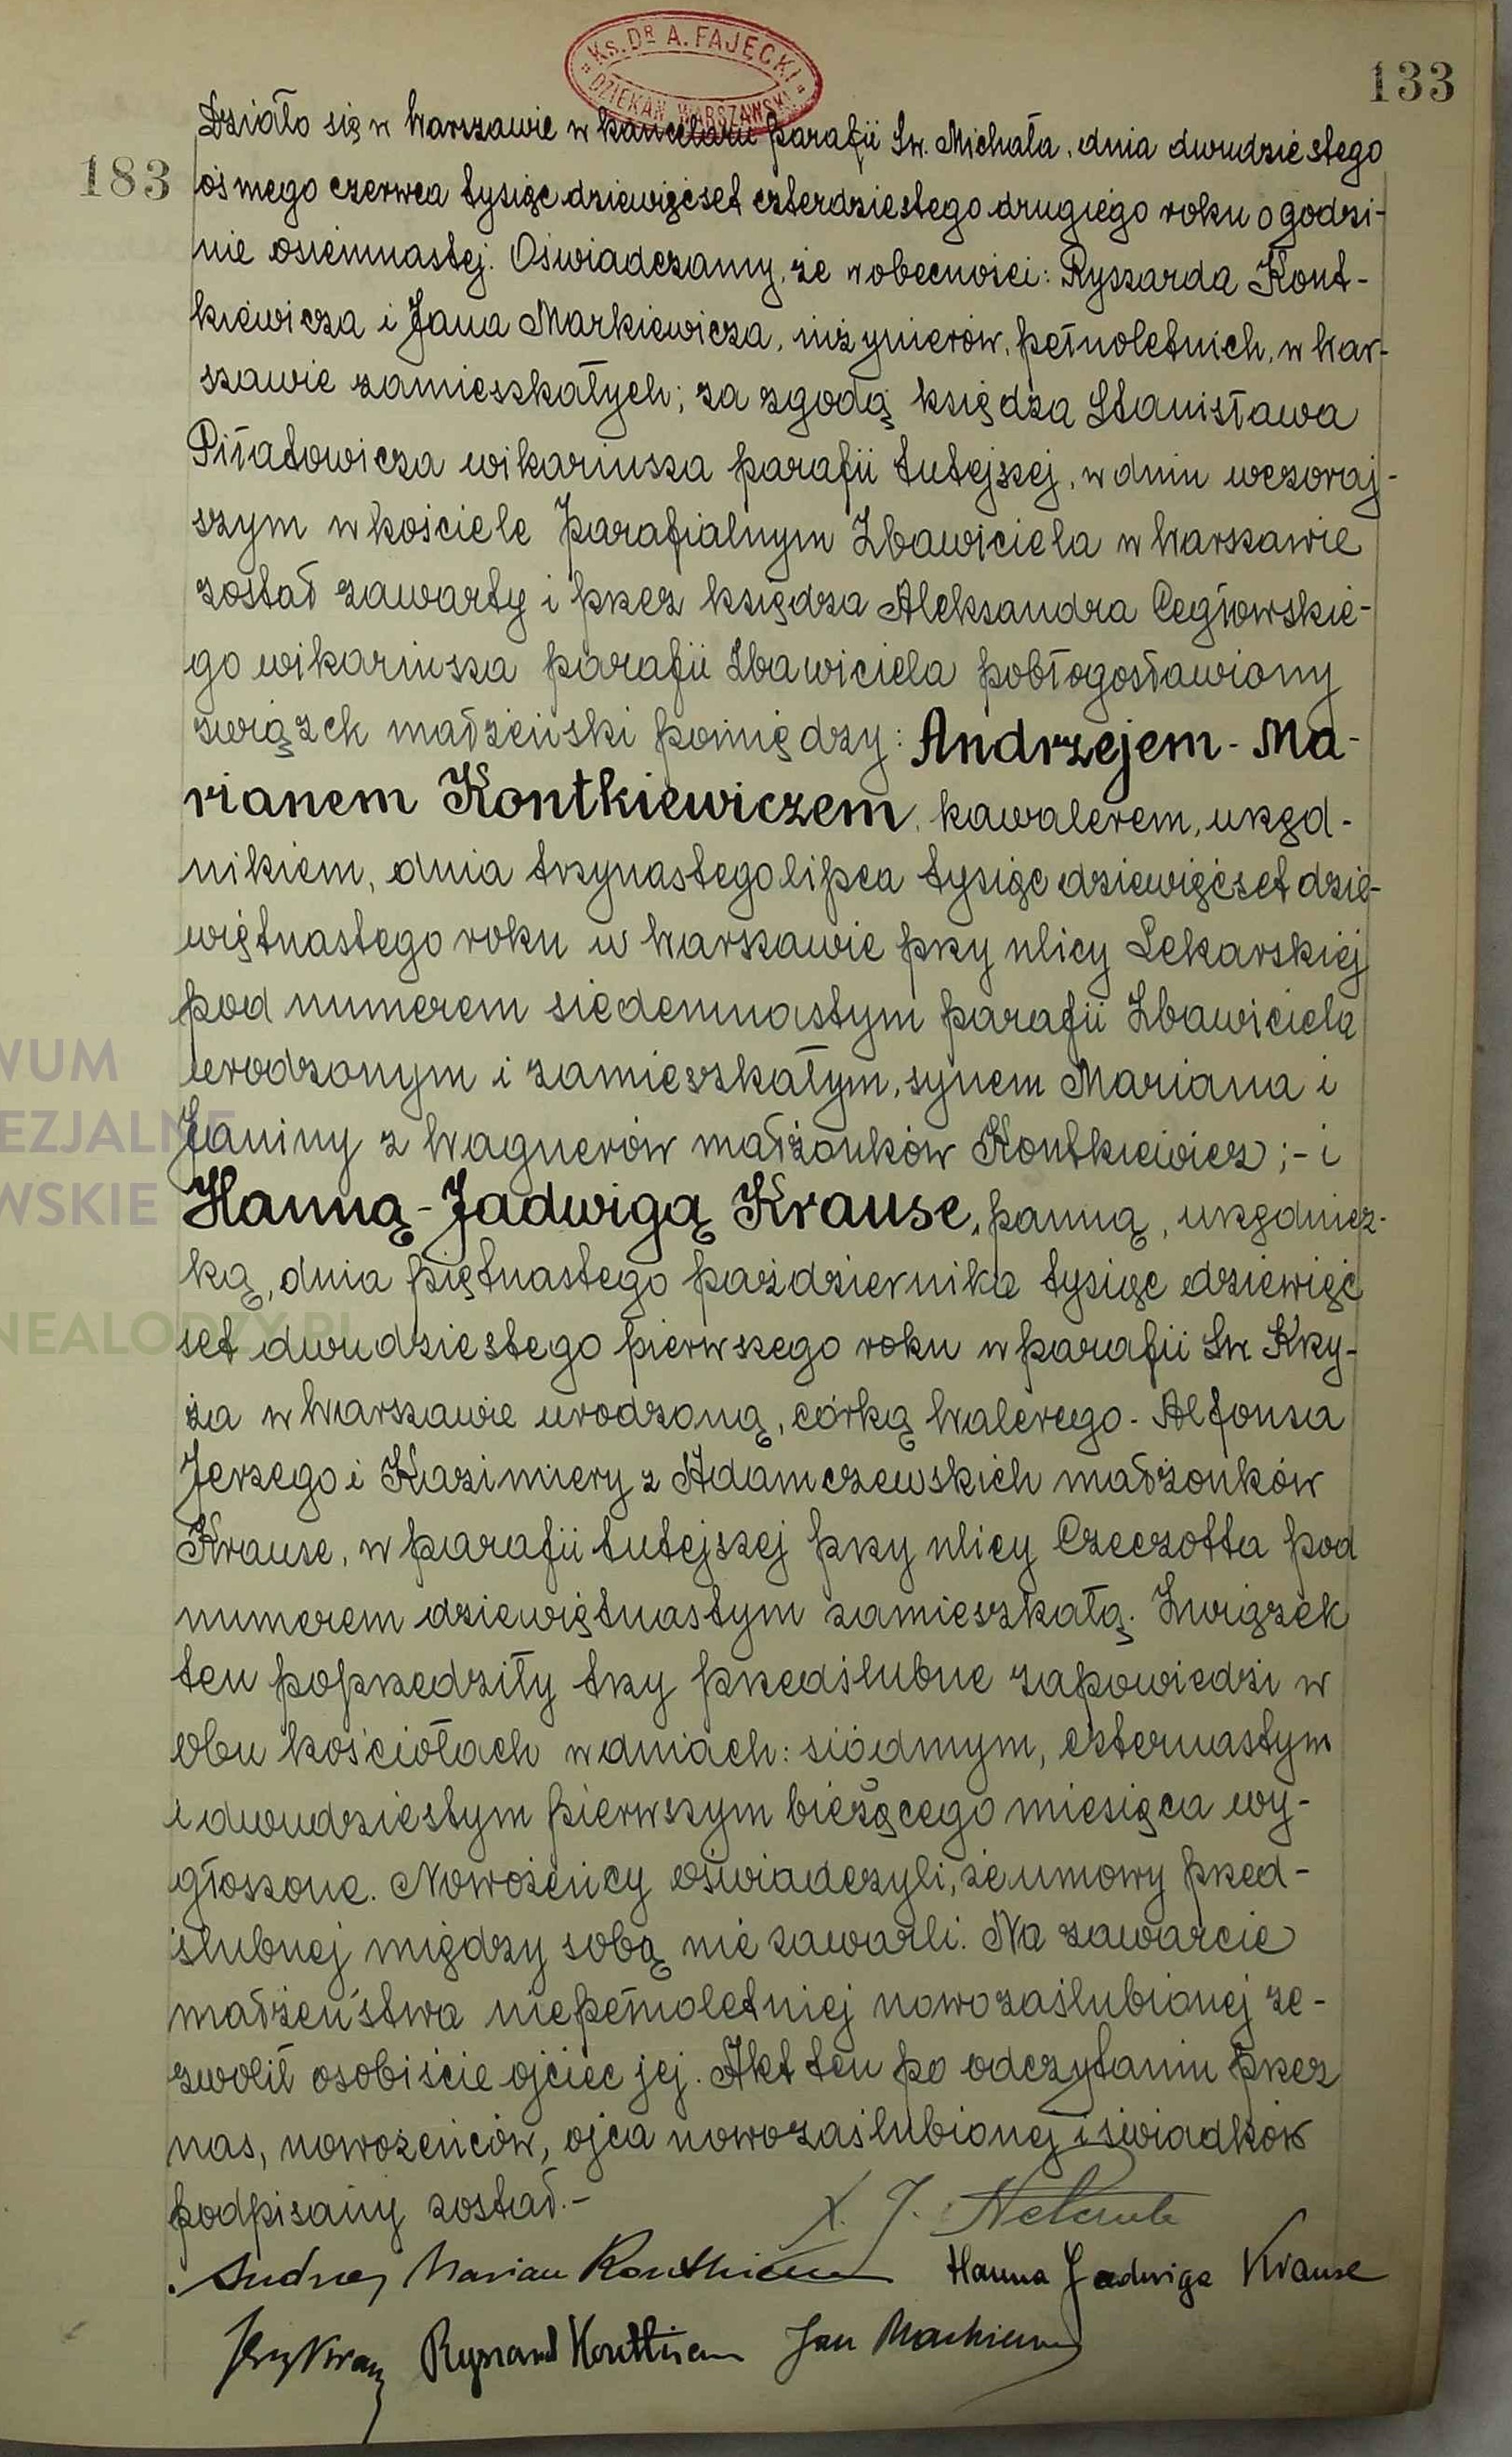 KS. DR A. FAJĘCKI
DZIEKAN WARSZAWSKI
133
183
Działo się w Warszawie w kancelarii parafii Św. Michała, dnia dwudziestego
ósmego czerwca tysiąc dziewięćset czterdziestego drugiego roku o godzi-
nie osiemnastej. Oświadczamy, że w obecności: Ryszarda Kont-
kiewicza i Jana Markiewicza, inżynierów, pełnoletnich, w War-
szawie zamieszkałych; za zgodą księdza Stanisława
Piłatowicza wikariusza parafii tutejszej, w dniu wczoraj-
szym w kościele parafialnym Zbawiciela w Warszawie
został zawarty i przez księdza Aleksandra Cegłowskie-
go wikariusza parafii Zbawiciela pobłogosławiony
związek małżeński pomiędzy: Andrzejem-Ma-
rianem Kontkiewiczem, kawalerem, urzęd-
nikiem, dnia trzynastego lipca tysiąc dziewięćset dzie-
więtnastego roku w Warszawie przy ulicy Lekarskiej
pod numerem siedemnastym parafii Zbawiciela
urodzonym i zamieszkałym, synem Mariana i
Janiny z Wagnerów małżonków Kontkiewicz; - i
Hanną-Jadwigą Krause, panną, urzędnicz-
ką, dnia piętnastego października tysiąc dziewięć
set dwudziestego pierwszego roku w parafii Św. Krzy-
ża w Warszawie urodzoną, córką Walerego-Alfonsa
Jerzego i Kazimiery z Adamczewskich małżonków
Krause, w parafii tutejszej przy ulicy Czeczotta pod
numerem dziewiętnastym zamieszkałą. Związek
ten poprzedziły trzy przedślubne zapowiedzi w
obu kościołach w dniach: siódmym, czternastym
i dwudziestym pierwszym bieżącego miesiąca wy-
głoszone. Nowożeńcy oświadczyli, że umowy przed-
ślubnej między sobą nie zawarli. Na zawarcie
małżeństwa niepełnoletniej nowozaślubionej ze-
zwolił osobiście ojciec jej. Akt ten po odczytaniu przez
nas, nowożeńców, ojca nowozaślubionej i świadków
podpisany został.-
X. J.
Andrzej Marian Kontkiewicz Hanna Jadwiga Krause
Jerzy Krause Ryszard Kontkiewicz Jan Markiewicz
WUM
EZJALNE
WSKIE
NEALODZY.PL